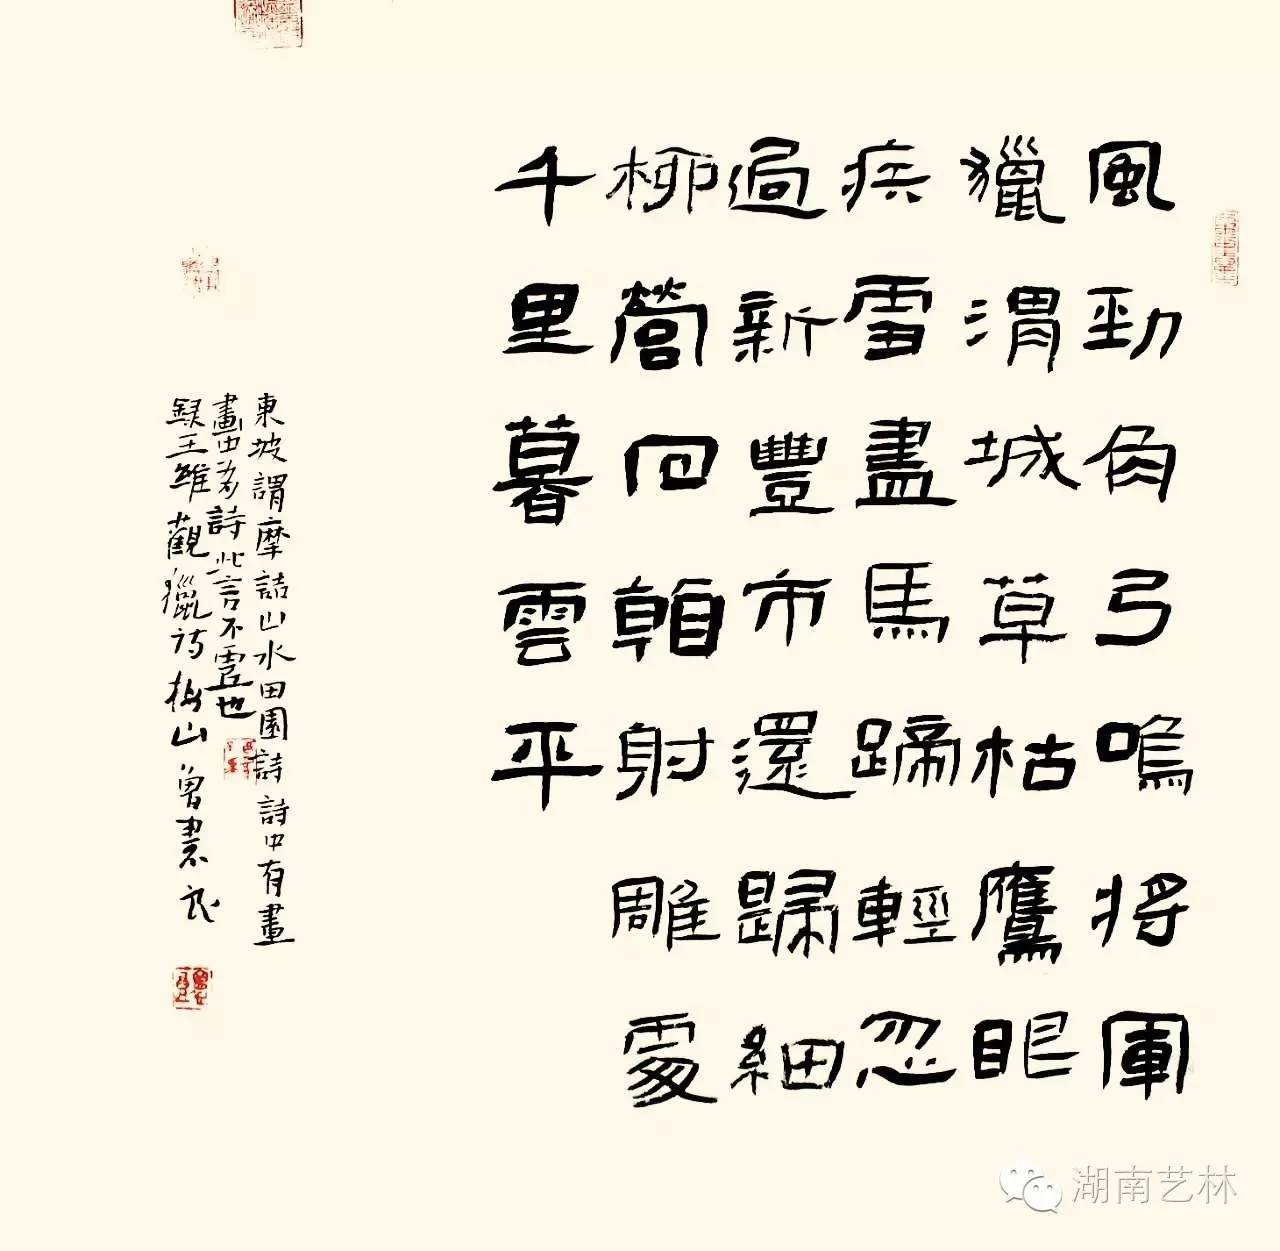 風勁角弓鳴將軍
獵渭城草枯鷹眼
疾雪盡馬蹄輕忽
過新豐市還歸細
柳營回看射雕處
千里暮雲平
東坡謂摩詰山水田園詩詩中有畫
畫中为詩此言不虛也
録王維觀獵詩梅山曾
湖南艺林